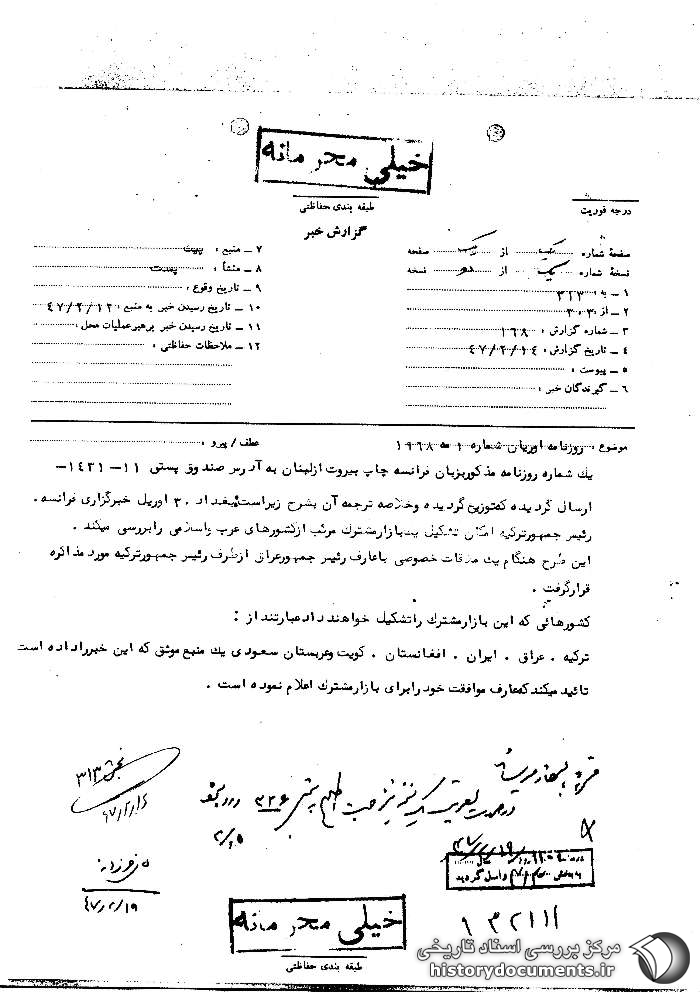 خیلی محرمانه
طبقه بندی حفاظتی
گزارش خبر
درجه فوریت
صفحهٔ شماره یک از یک صفحه
نسخهٔ شماره یک از دو نسخه
۱ ـ به : ۳۲۳
۲ ـ از : ۳۰۳
۳ ـ شماره گزارش : ۱۶۸
۴ ـ تاریخ گزارش : ۴۷/۲/۱۴
۵ ـ پیوست :
۶ ـ گیرندگان خبر :
۷ ـ منبع : پست
۸ ـ منشأ : پست
۹ ـ تاریخ وقوع :
۱۰ ـ تاریخ رسیدن خبر به منبع : ۴۷/۲/۱۲
۱۱ ـ تاریخ رسیدن خبر برهبر عملیات محل :
۱۲ ـ ملاحظات حفاظتی :
موضوع : روزنامه اوریان شماره ۱ مه ۱۹۶۸
عطف / پیرو :
یک شماره روزنامه مذکور بزبان فرانسه چاپ بیروت از لبنان به آدرس صندوق پستی ۱۱ـ ۱۴۳۱ـ
ارسال گردیده که توزیع گردیده و خلاصه ترجمه آن بشرح زیر است بغداد ۳۰ آوریل خبرگزاری فرانسه .
رئیس جمهور ترکیه امکان تشکیل یک بازار مشترک مرکب از کشورهای عرب و اسلامی را بررسی میکند .
این طرح هنگام یک ملاقات خصوصی با عارف رئیس جمهور عراق از طرف رئیس جمهور ترکیه مورد مذاکره
قرار گرفت .
کشورهائی که این بازار مشترک را تشکیل خواهند داد عبارتند از :
ترکیه . عراق . ایران . افغانستان . کویت و عربستان سعودی یک منبع موثق که این خبر را داده است
تائید میکند که عارف موافقت خود را برای بازار مشترک اعلام نموده است .
بخش ۳۱۳
۴۷/۲/۱۹
خیلی محرمانه
طبقه بندی حفاظتی
مرکز بررسی اسناد تاریخی
historydocuments.ir